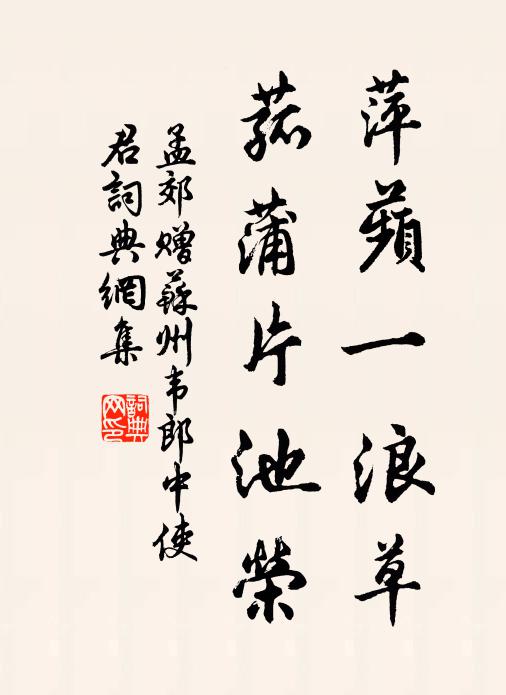 萍蘋一浪草
菰蒲片池榮
孟郊贈蘇州韦郎中使
君詞典網集
詞典
网印